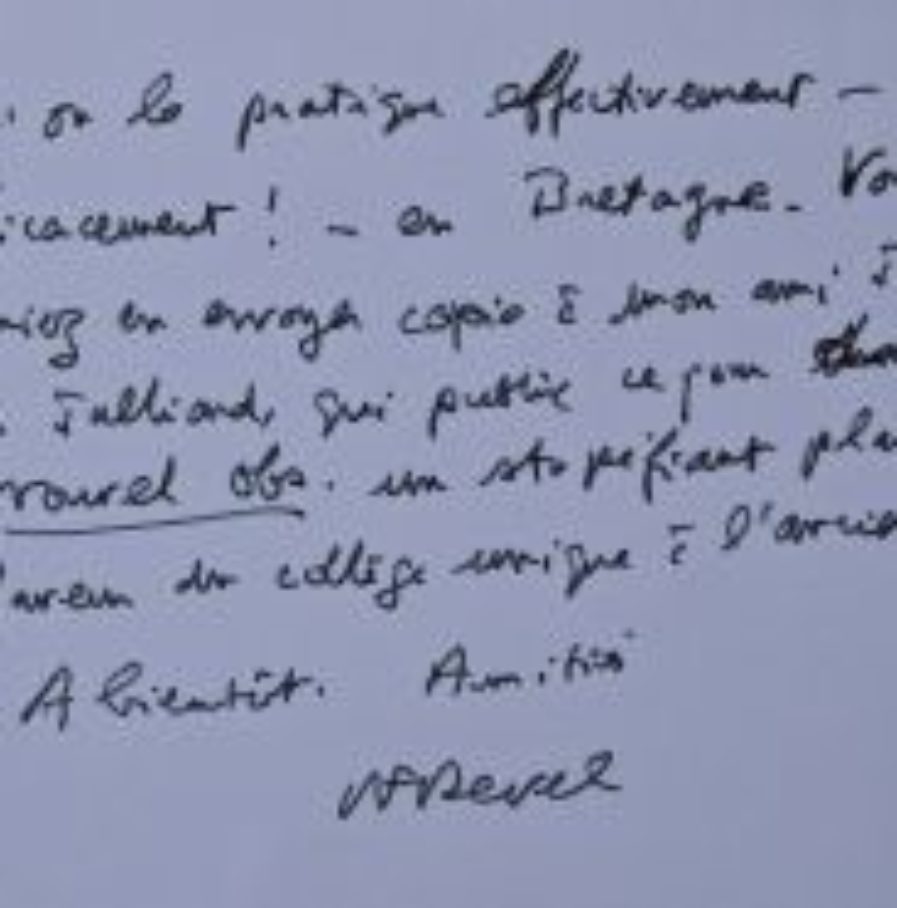 on le pratique effectivement -
icacement ! - en Bretagne. Vo
riez en envoyer copie à mon ami J
. Julliard, qui publie ce jour dans
nouvel obs. un stupéfiant pla
faveur du collège unique à l'ancie
A bientôt. Amitiés
JFRevel